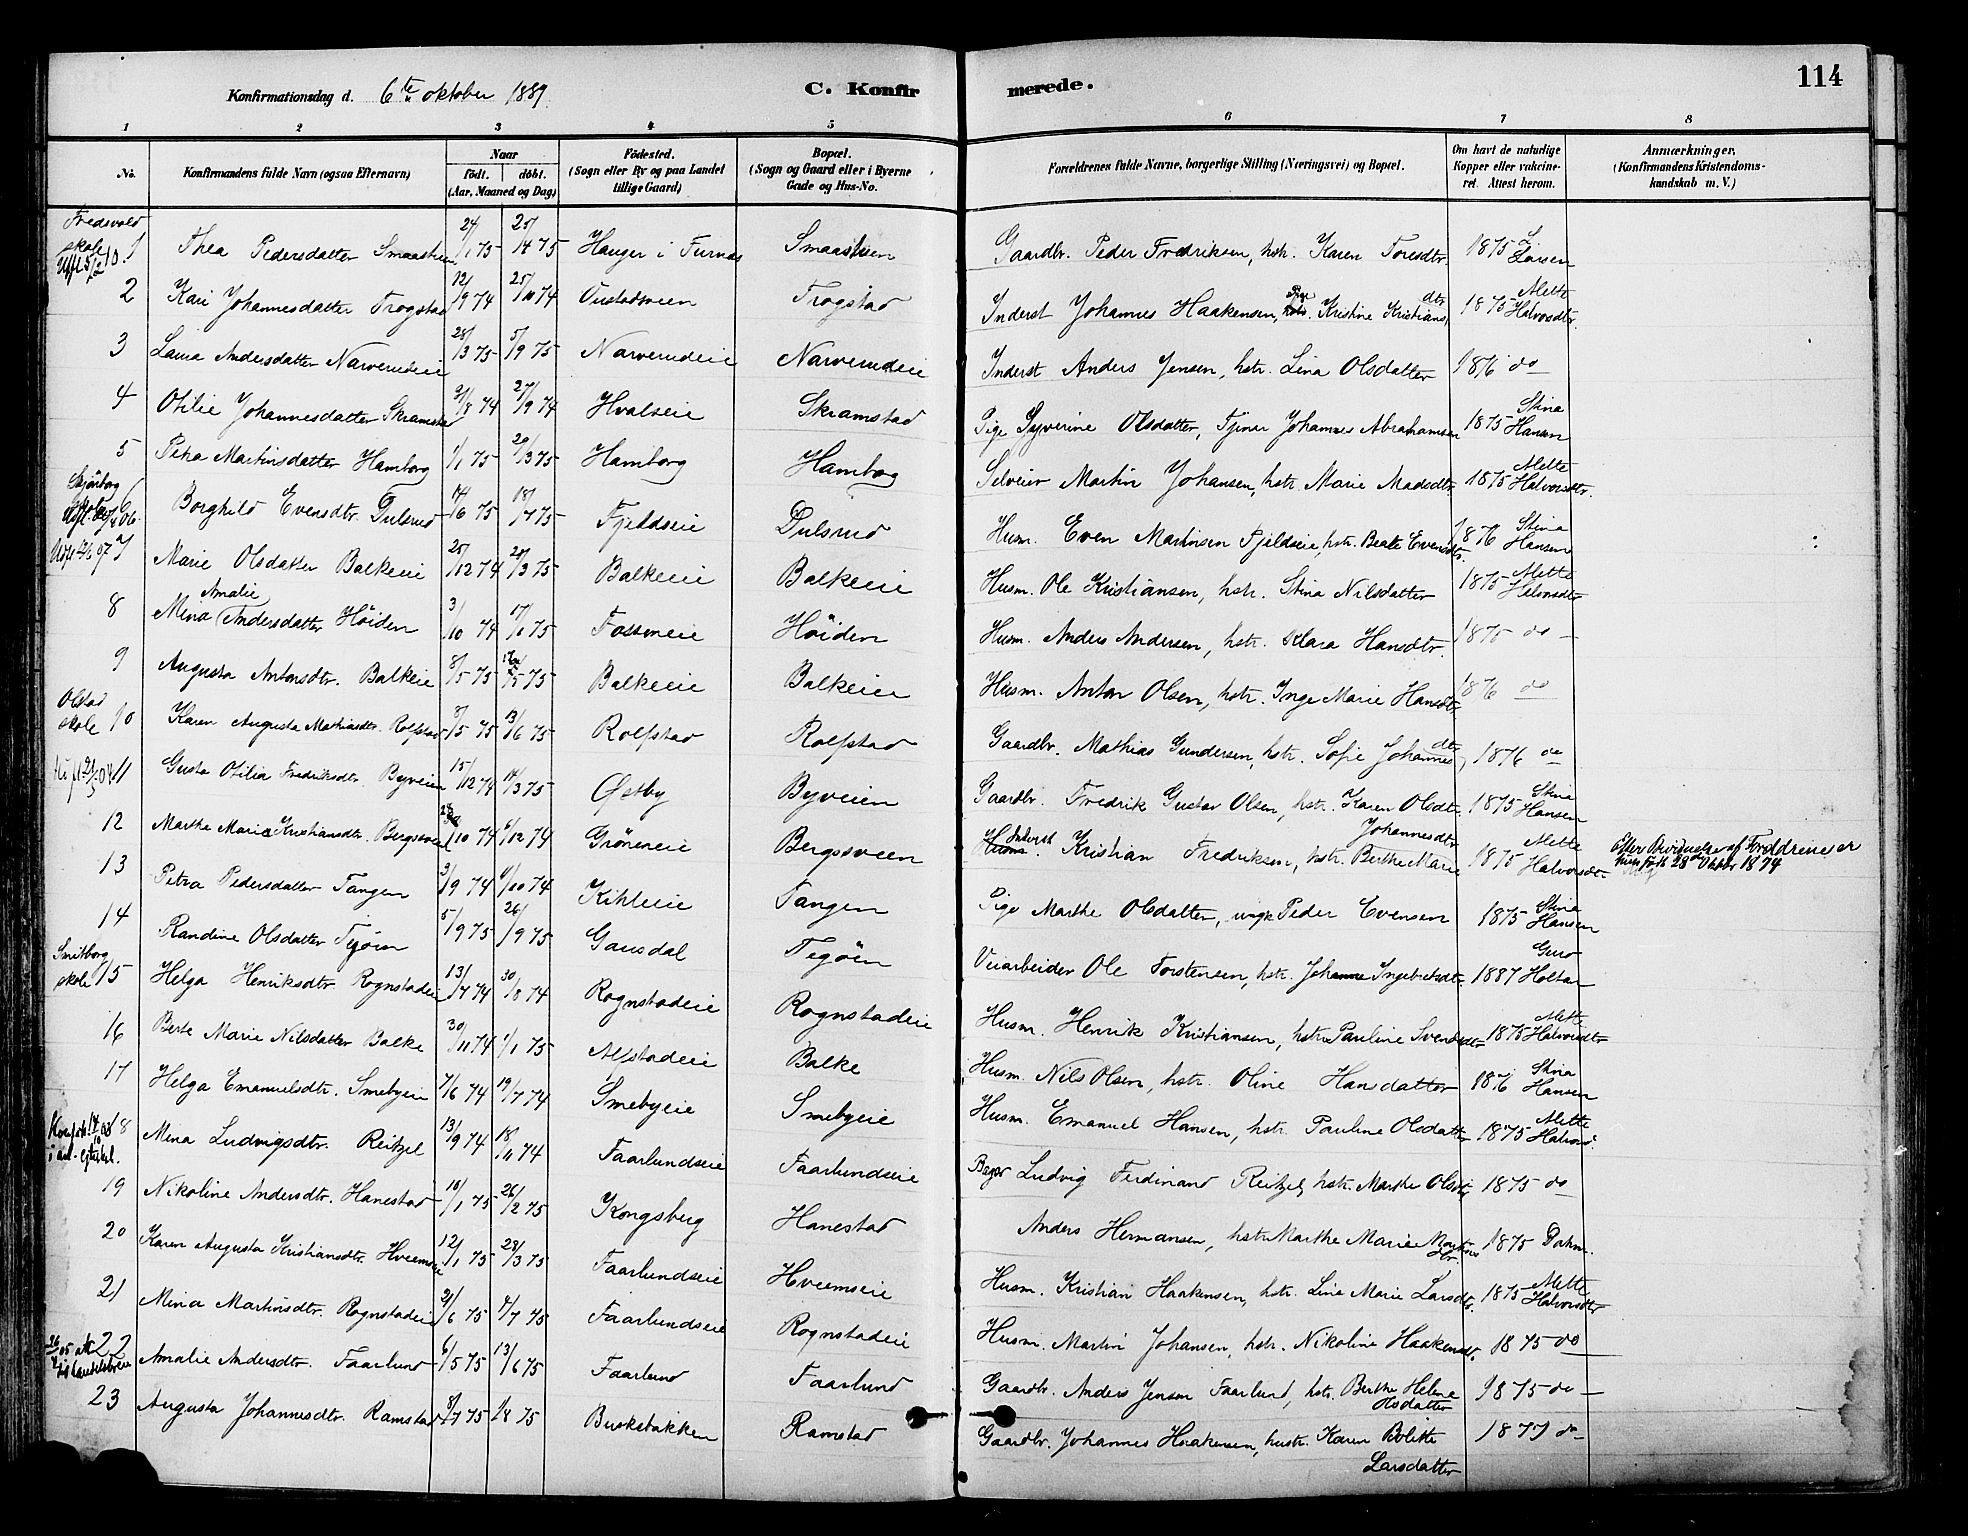 Konfirmationsdag d. 6te oktober 1889. C. Konfirmerede. 114
1 2 3 4 5 6 7 8
No. Konfirmandens fulde Navn (ogsaa Efternavn) Naar födt. döbt. (Aar, Maaned og Dag) Födested. (Sogn eller By og paa Landet tillige Gaard) Bopæl. (Sogn og Gaard eller i Byerne Gade og Hus-No. Forældrenes fulde Navne, borgerlige Stilling (Næringsvei) og Bopæl. Om havt de naturlige Kopper eller vakcineret. Attest herom. Anmærkninger. (Konfirmandens Kristendomskundskab m. V.)
Fredsvold skole
1 Thea Pedersdatter Smaastuen 24/1 75 25/4 75 Hauger i Furnes Smaastuen Gaardbr. Peder Fredriksen, hstr. Karen Toresdtr. 1875 L. Larsen
2 Kari Johannesdatter Trogstad 12/9 74 25/10 74 Trogstad Inderst Johannes Haakensen, Pige Kristine Kristiansdtr 1875 Mette Halvorsdtr.
3 Laura Andersdatter Narverudeie 28/3 75 5/9 75 Narverudeie Narverudeie Inderst Anders Jensen, hstr. Lina Olsdatter 1876 do
4 Otilie Johannesdatter Skramstad 27/9 74 Hvalseie Skramstad Pige Syverine Olsdatter, Tjener Johannes Abrahamsen 1875 Stina Hansen
5 Petra Martinsdatter Hamborg 1/1 75 20/3 75 Hamborg Hamborg Selveier Martin Johansen, hstr. Marie Madsdtr. 1875 Mette Halvorsdtr.
skole
6 Borghild Evensdtr. Dulsrud 14/6 75 18/7 75 Fjeldseie Dulsrud Husm. Even Martinsen Fjeldseie, hstr. Beate Evensdtr. 1876 Stina Hansen
7 Marie Olsdatter Balkeeie 25/12 74 20/3 75 Balkeeie Balkeeie Husm. Ole Kristiansen, hstr. Stina Nilsdatter 1875 Mette Halvorsdtr
8 Mina Amalie Andersdatter Höiden 3/10 74 17/1 75 Fossmeie Höiden Husm. Anders Andersen, hstr. Klara Hansdtr. 1875 do
9 Augusta Antonsdtr. Balkeie 8/5 75 Balkeeie Balkeeie Husm. Anton Olsen, hstr. Inge Marie Hansdtr. 1876 do
Olstad skole
10 Karen Augusta Mathiasdtr. Rolfstad 3/5 75 13/6 75 Rolfstad Rolfstad Gaardbr. Mathias Gundersen, hstr. Sofie Johannesdtr, 1876 do
11 Gusta Otilia Fredriksdtr. Byveien 15/12 74 14/3 75 Østby Byveien Gaardbr. Fredrik Gustav Olsen, hstr. Karen Olsdtr. 1875 Stina Hansen
12 Marthe Marie Kristiansdtr. Bergsveen 28/10 74 6/12 74 Gröneneie Bergsveen Inderst Kristian Fredriksen, hstr. Berthe Marie Johannesdtr 1875 Mette Halvorsdtr Efter Anvisnelse af Forældrene er hun født 28de Oktbr 1874
13 Petra Pedersdatter Tangen 3/9 74 1/10 74 Kihleeie Tangen Pige Marthe Olsdatter, ungk Peder Evensen 1875 Stina Hansen
14 Randine Olsdatter Tejöen 5/9 75 26/9 75 Gausdal Tejöen Veiarbeider Ole Torstensen, hstr. Johanne Ingebretsdtr. 1887 Guro Holtar
Smitborg skole
15 Helga Henriksdtr Rognstadeie 13/7 74 30/8 74 Rognstadeie Rognstadeie Husm. Henrik Kristiansen, hstr. Pauline Svendsdtr 1875 Mette Halvorsdtr
16 Berte Marie Nilsdatter Balke 30/11 74 1/1 75 Alfstadeie Balke Husm. Nils Olsen, hstr. Oline Hansdatter 1876 Stina Hansen
17 Helga Emanuelsdtr. Smebyeie 7/6 74 19/7 74 Smebyeie Smebyeie Husm. Emanuel Hansen, hstr. Pauline Olsdatter 1875 Mette Halvorsd.
18 Mina Ludvigsdtr. Reitzel 13/9 74 18/11 74 Faarlundseie Faarlundseie Bager Ludvig Ferdinand Reitzel, hstr. Marthe Olsdtr. 1875 do
19 Nikoline Andersdtr. Hanestad 16/1 75 26/2 75 Kongsberg Hanestad Anders Hermansen, hstr. Marthe Marie Martinsdtr. 1875 Dahm.
20 Karen Augusta Kristiansdtr. Hveemseie 12/1 75 28/3 75 Faarlundseie Hveemseie Husm. Kristian Haakensen, hstr. Lina Marie Larsdtr. 1875 Mette Halvorsdtr
21 Mina Martinsdtr. Rognstadeie 21/6 75 4/7 75 Faarlundseie Rognstadeie Husm. Martin Johansen, hstr. Nikoline Haakensdtr. 1875 do
22 Amalie Andersdtr. Faarlund 6/5 75 13/6 75 Faarlund Faarlund Gaardbr. Anders Jensen Faarlund, hstr. Berthe Helene Olsdatter 1875 do
23 Augusta Johannesdtr. Ramstad 8/7 75 1/8 75 Buskebakken Ramstad Gaardbr. Johannes Haakensen, hustr. Karen Bolitte Larsdatter 1877 do